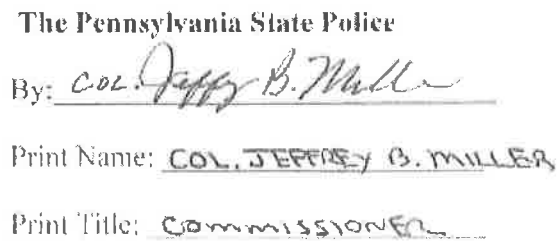 The Pennsylvania State Police
By: COL. Jeffrey B. Miller
Print Name: COL. JEFFREY B. MILLER
Print Title: COMMISSIONER